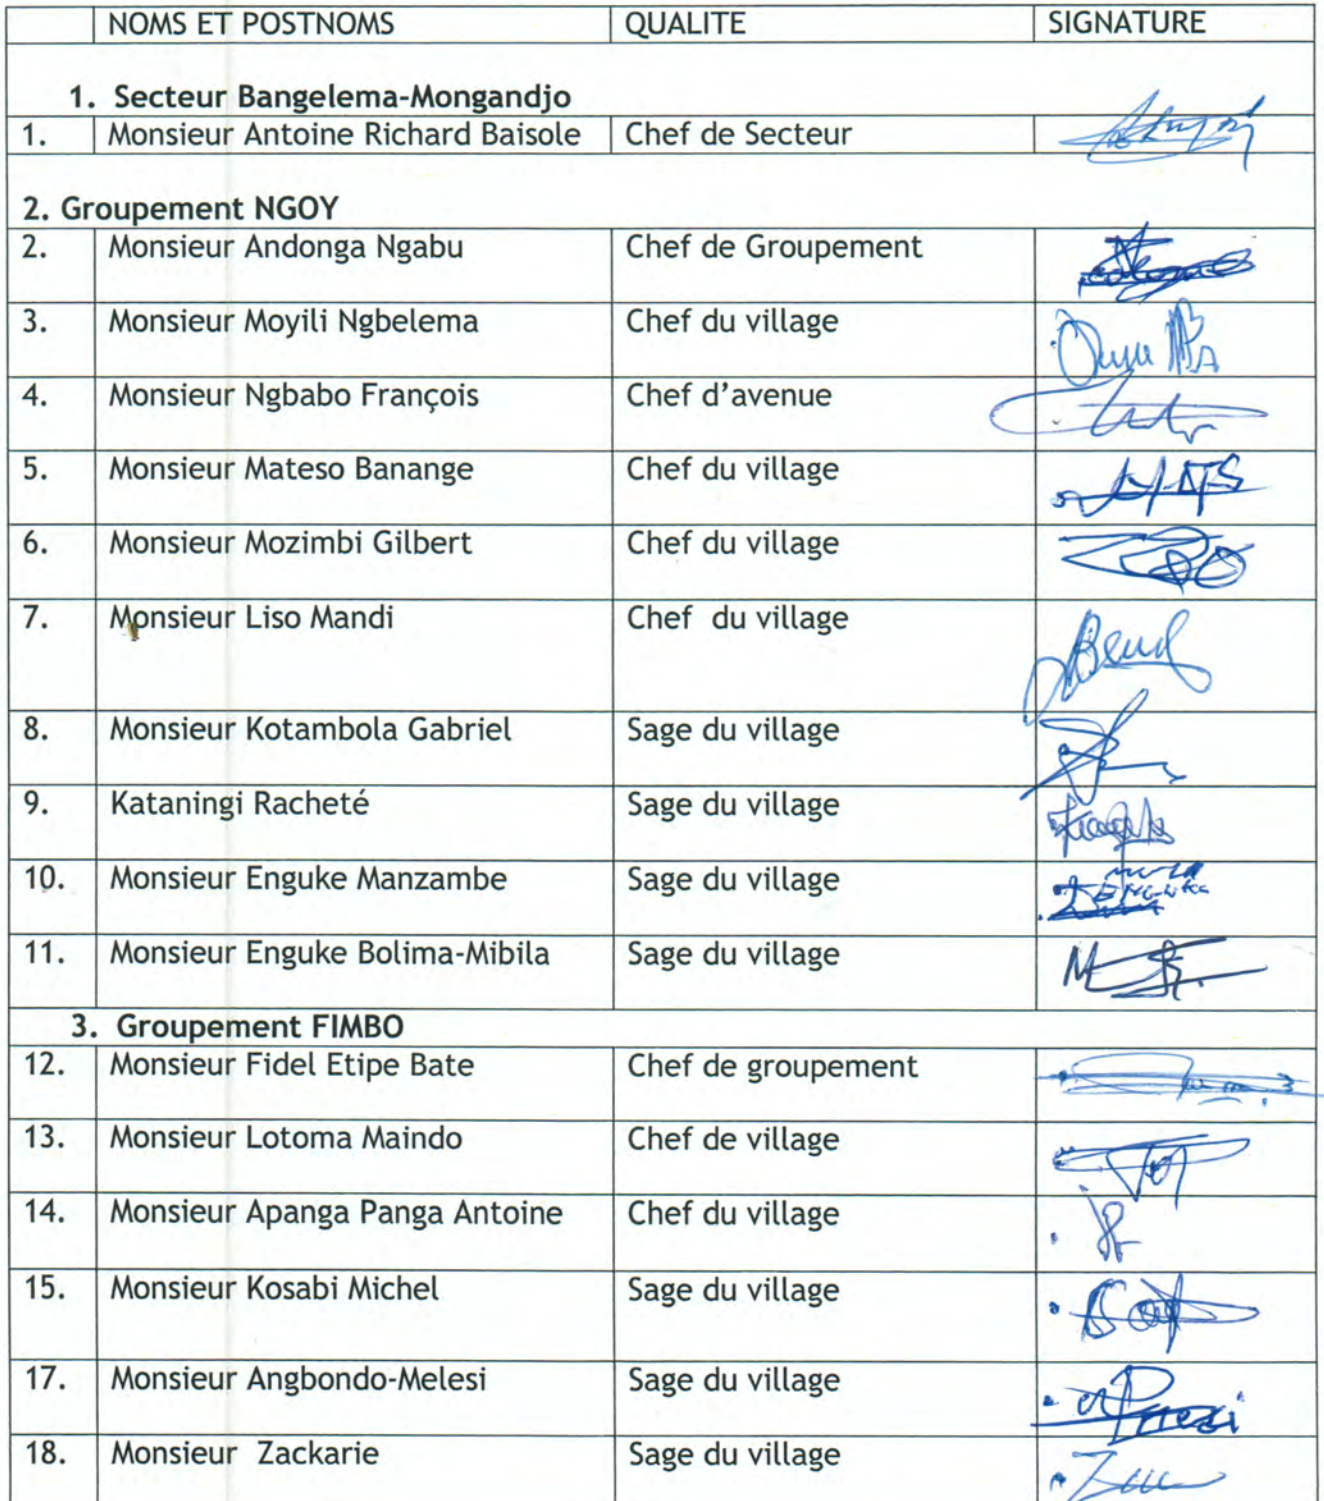 NOMS ET POSTNOMS QUALITE SIGNATURE
1. Secteur Bangelema-Mongandjo
1. Monsieur Antoine Richard Baisole Chef de Secteur
2. Groupement NGOY
2. Monsieur Andonga Ngabu Chef de Groupement
3. Monsieur Moyili Ngbelema Chef du village
4. Monsieur Ngbabo François Chef d’avenue
5. Monsieur Mateso Banange Chef du village
6. Monsieur Mozimbi Gilbert Chef du village
7. Monsieur Liso Mandi Chef du village
8. Monsieur Kotambola Gabriel Sage du village
9. Kataningi Racheté Sage du village
10. Monsieur Enguke Manzambe Sage du village
11. Monsieur Enguke Bolima-Mibila Sage du village
3. Groupement FIMBO
12. Monsieur Fidel Etipe Bate Chef de groupement
13. Monsieur Lotoma Maindo Chef de village
14. Monsieur Apanga Panga Antoine Chef du village
15. Monsieur Kosabi Michel Sage du village
17. Monsieur Angbondo-Melesi Sage du village
18. Monsieur Zackarie Sage du village